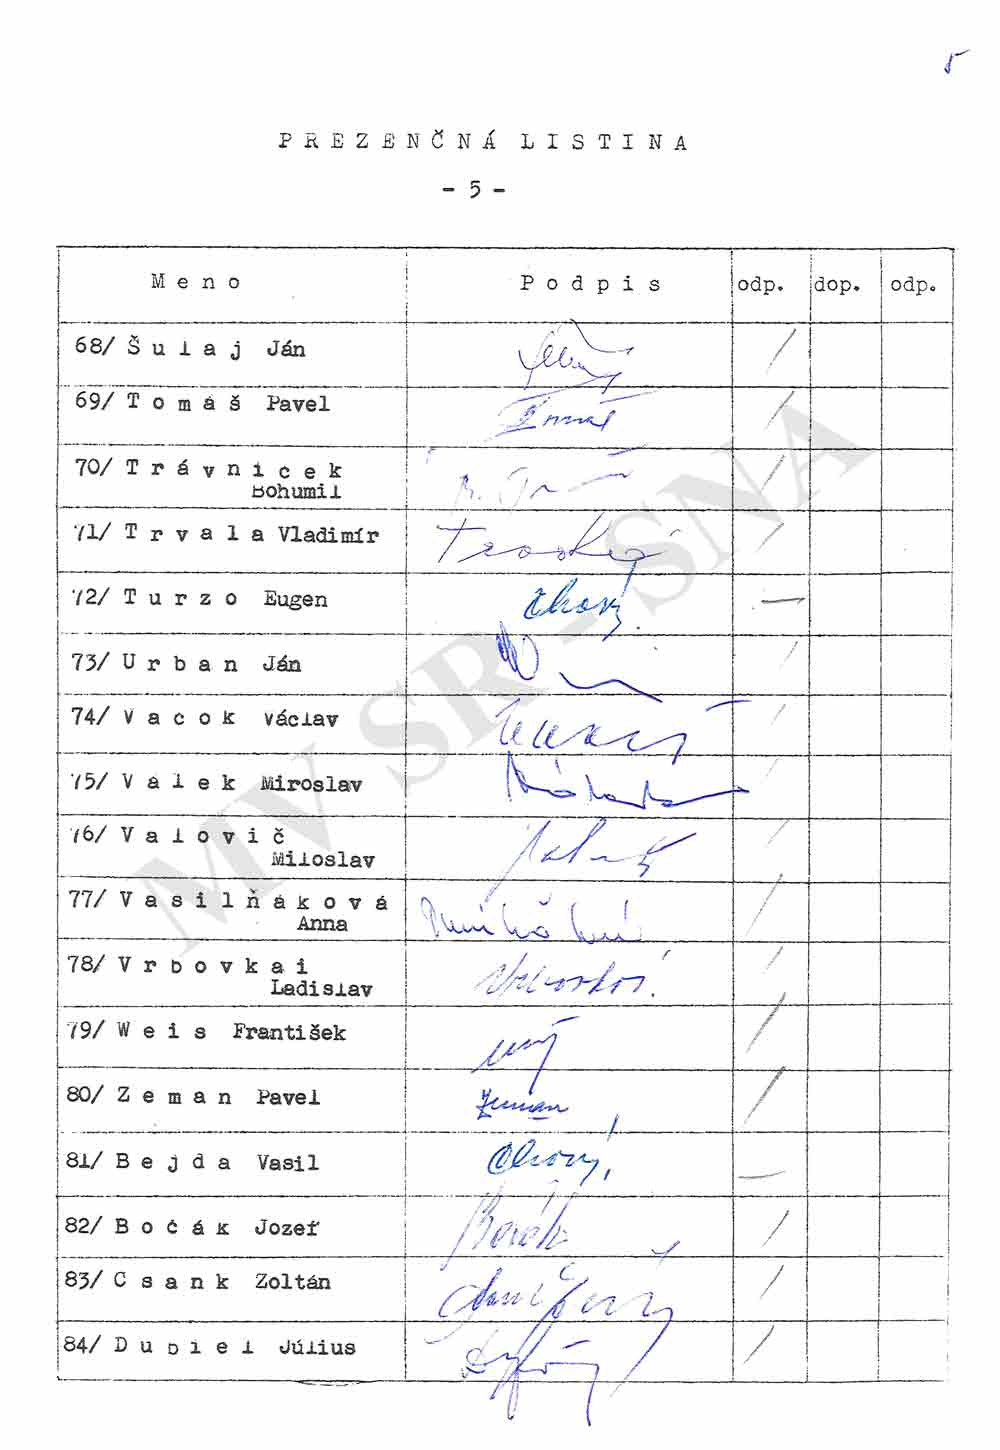 5
PREZENČNÁ LISTINA
- 5 -
Meno Podpis odp. dop. odp.
68/ Šulaj Ján
69/ Tomáš Pavel Tomáš
70/ Trávnicek
Bohumil
71/ Trvala Vladimír
72/ Turzo Eugen chorý
73/ Urban Ján
74/ Vacok Václav
75/ Válek Miroslav
76/ Valovič
Miloslav
77/ Vasilňáková
Anna
78/ Vrbovkai
Ladislav
79/ Weis František
80/ Zeman Pavel Zeman
81/ Bejda Vasil Chorý
82/ Bočák Jozef Bočák
83/ Csank Zoltán
84/ Dubiel Július
MV SR - SNA